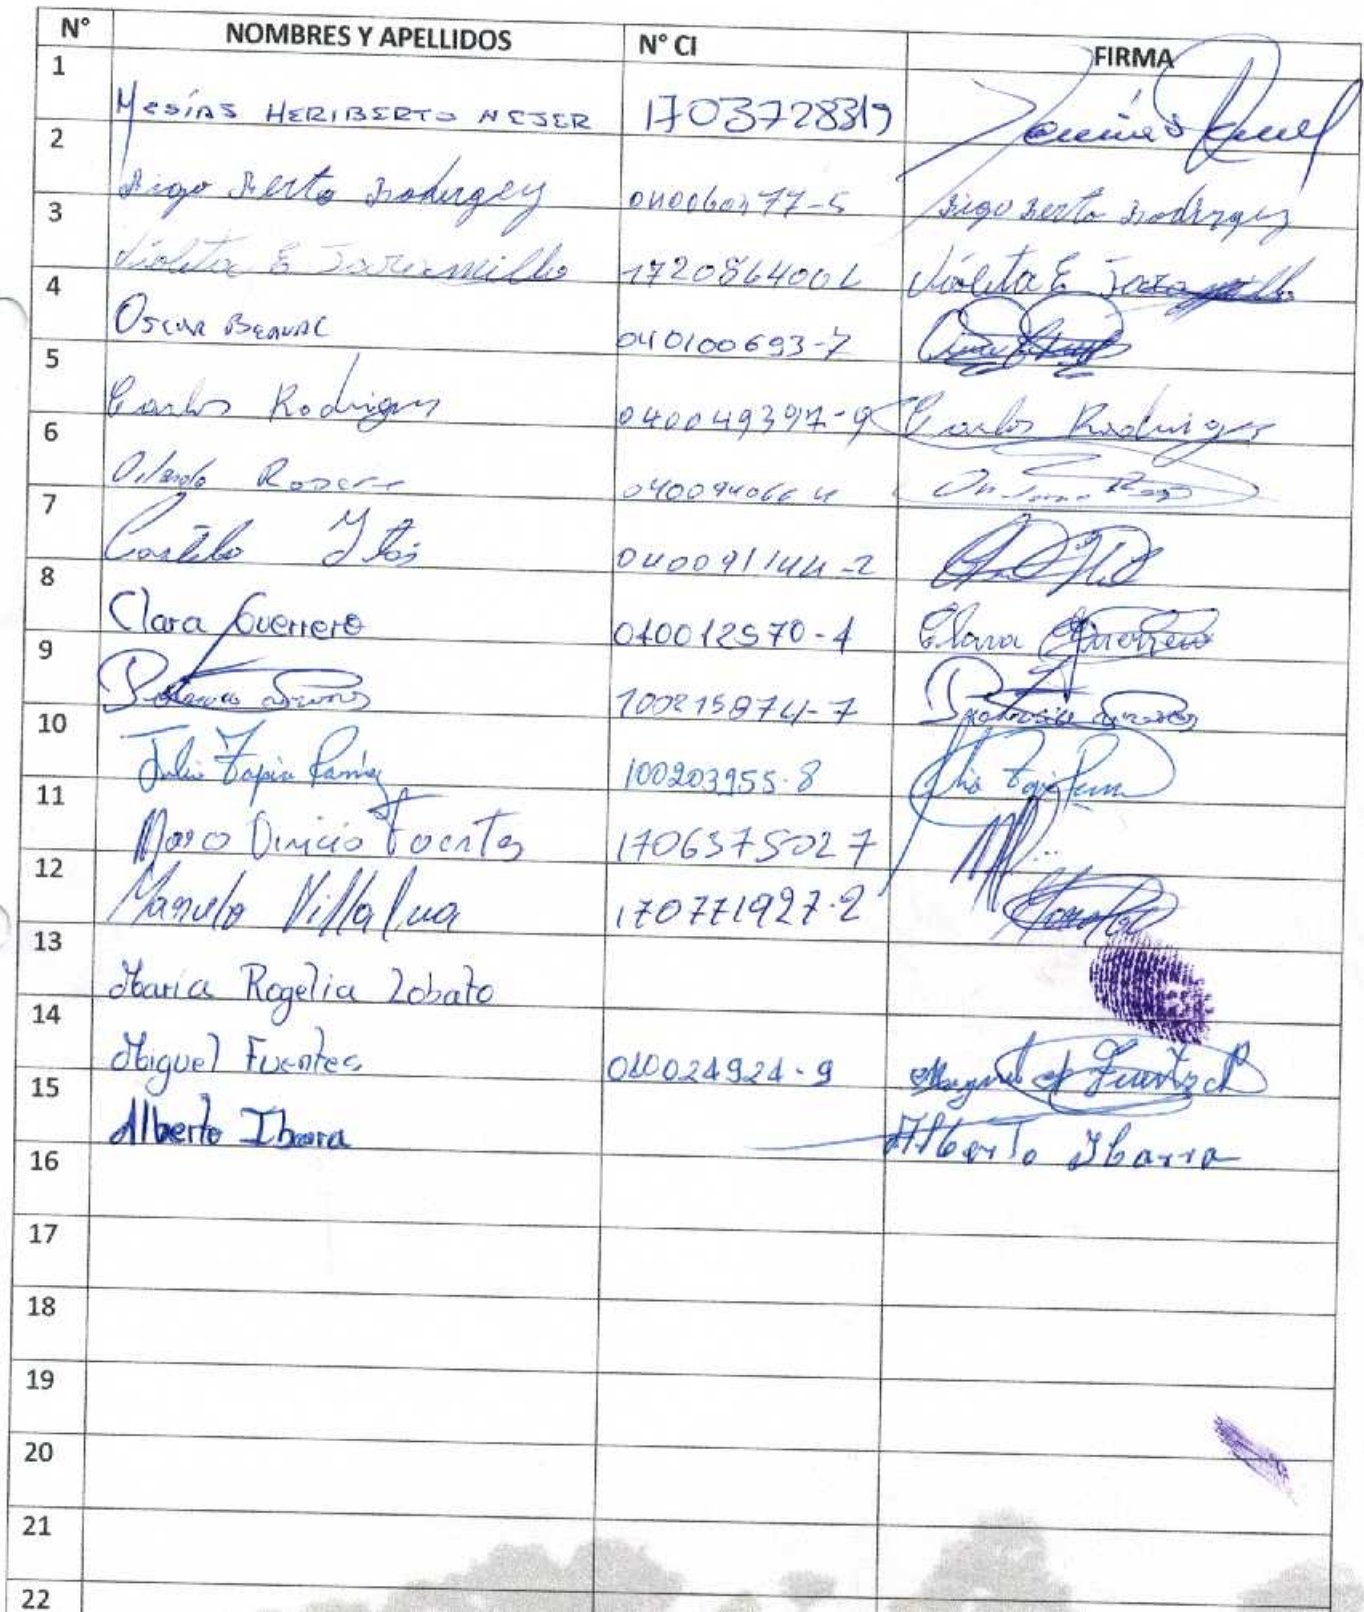 N° NOMBRES Y APELLIDOS N° CI FIRMA
1
Mesías HERIBERTO NEJER 1703728319
2
Rigo Berto Rodirgez Rigo Berto Rodirgez
3
Violeta E Jaramillo Violeta E Jaramillo
4
Oscar Bernal 040100693-7
5
Carlos Rodriguez 040049397-9 Carlos Rodriguez
6
Orlando Rosero
7
Castillo 040091144-2
8
Clara Guerrero 040012570-1 Clara Guerrero
9
100215874-7
10
Julio Tapia 100203955-8 Julio Tapia
11
Marco Vinicio Fuentes 1706375027
12
Manuela Villalua 170771927-2
13
Maria Rogelia Lobato
14
Miguel Fuentes 040024924-9
15
Alberto Ibarra Alberto Ibarra
16
17
18
19
20
21
22